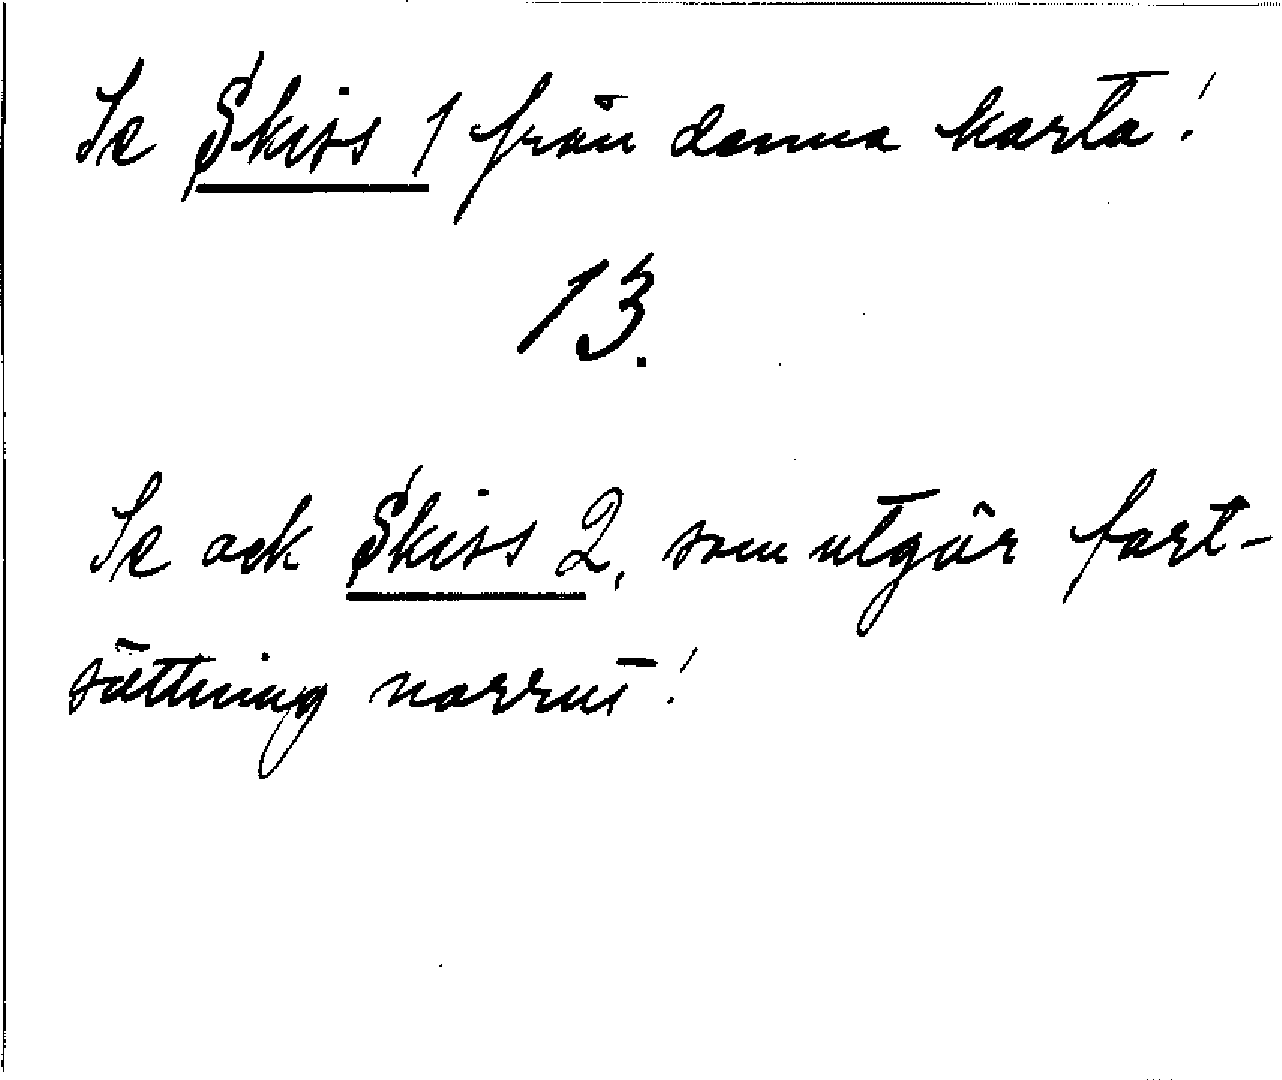 Se Skiss 1 från denna karta!
13.
Se ock Skiss 2, som utgör fort-
sättning norrut!